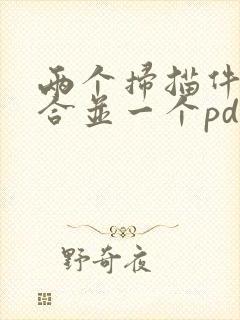 两个掃描件
合並一个pd
野奇夜